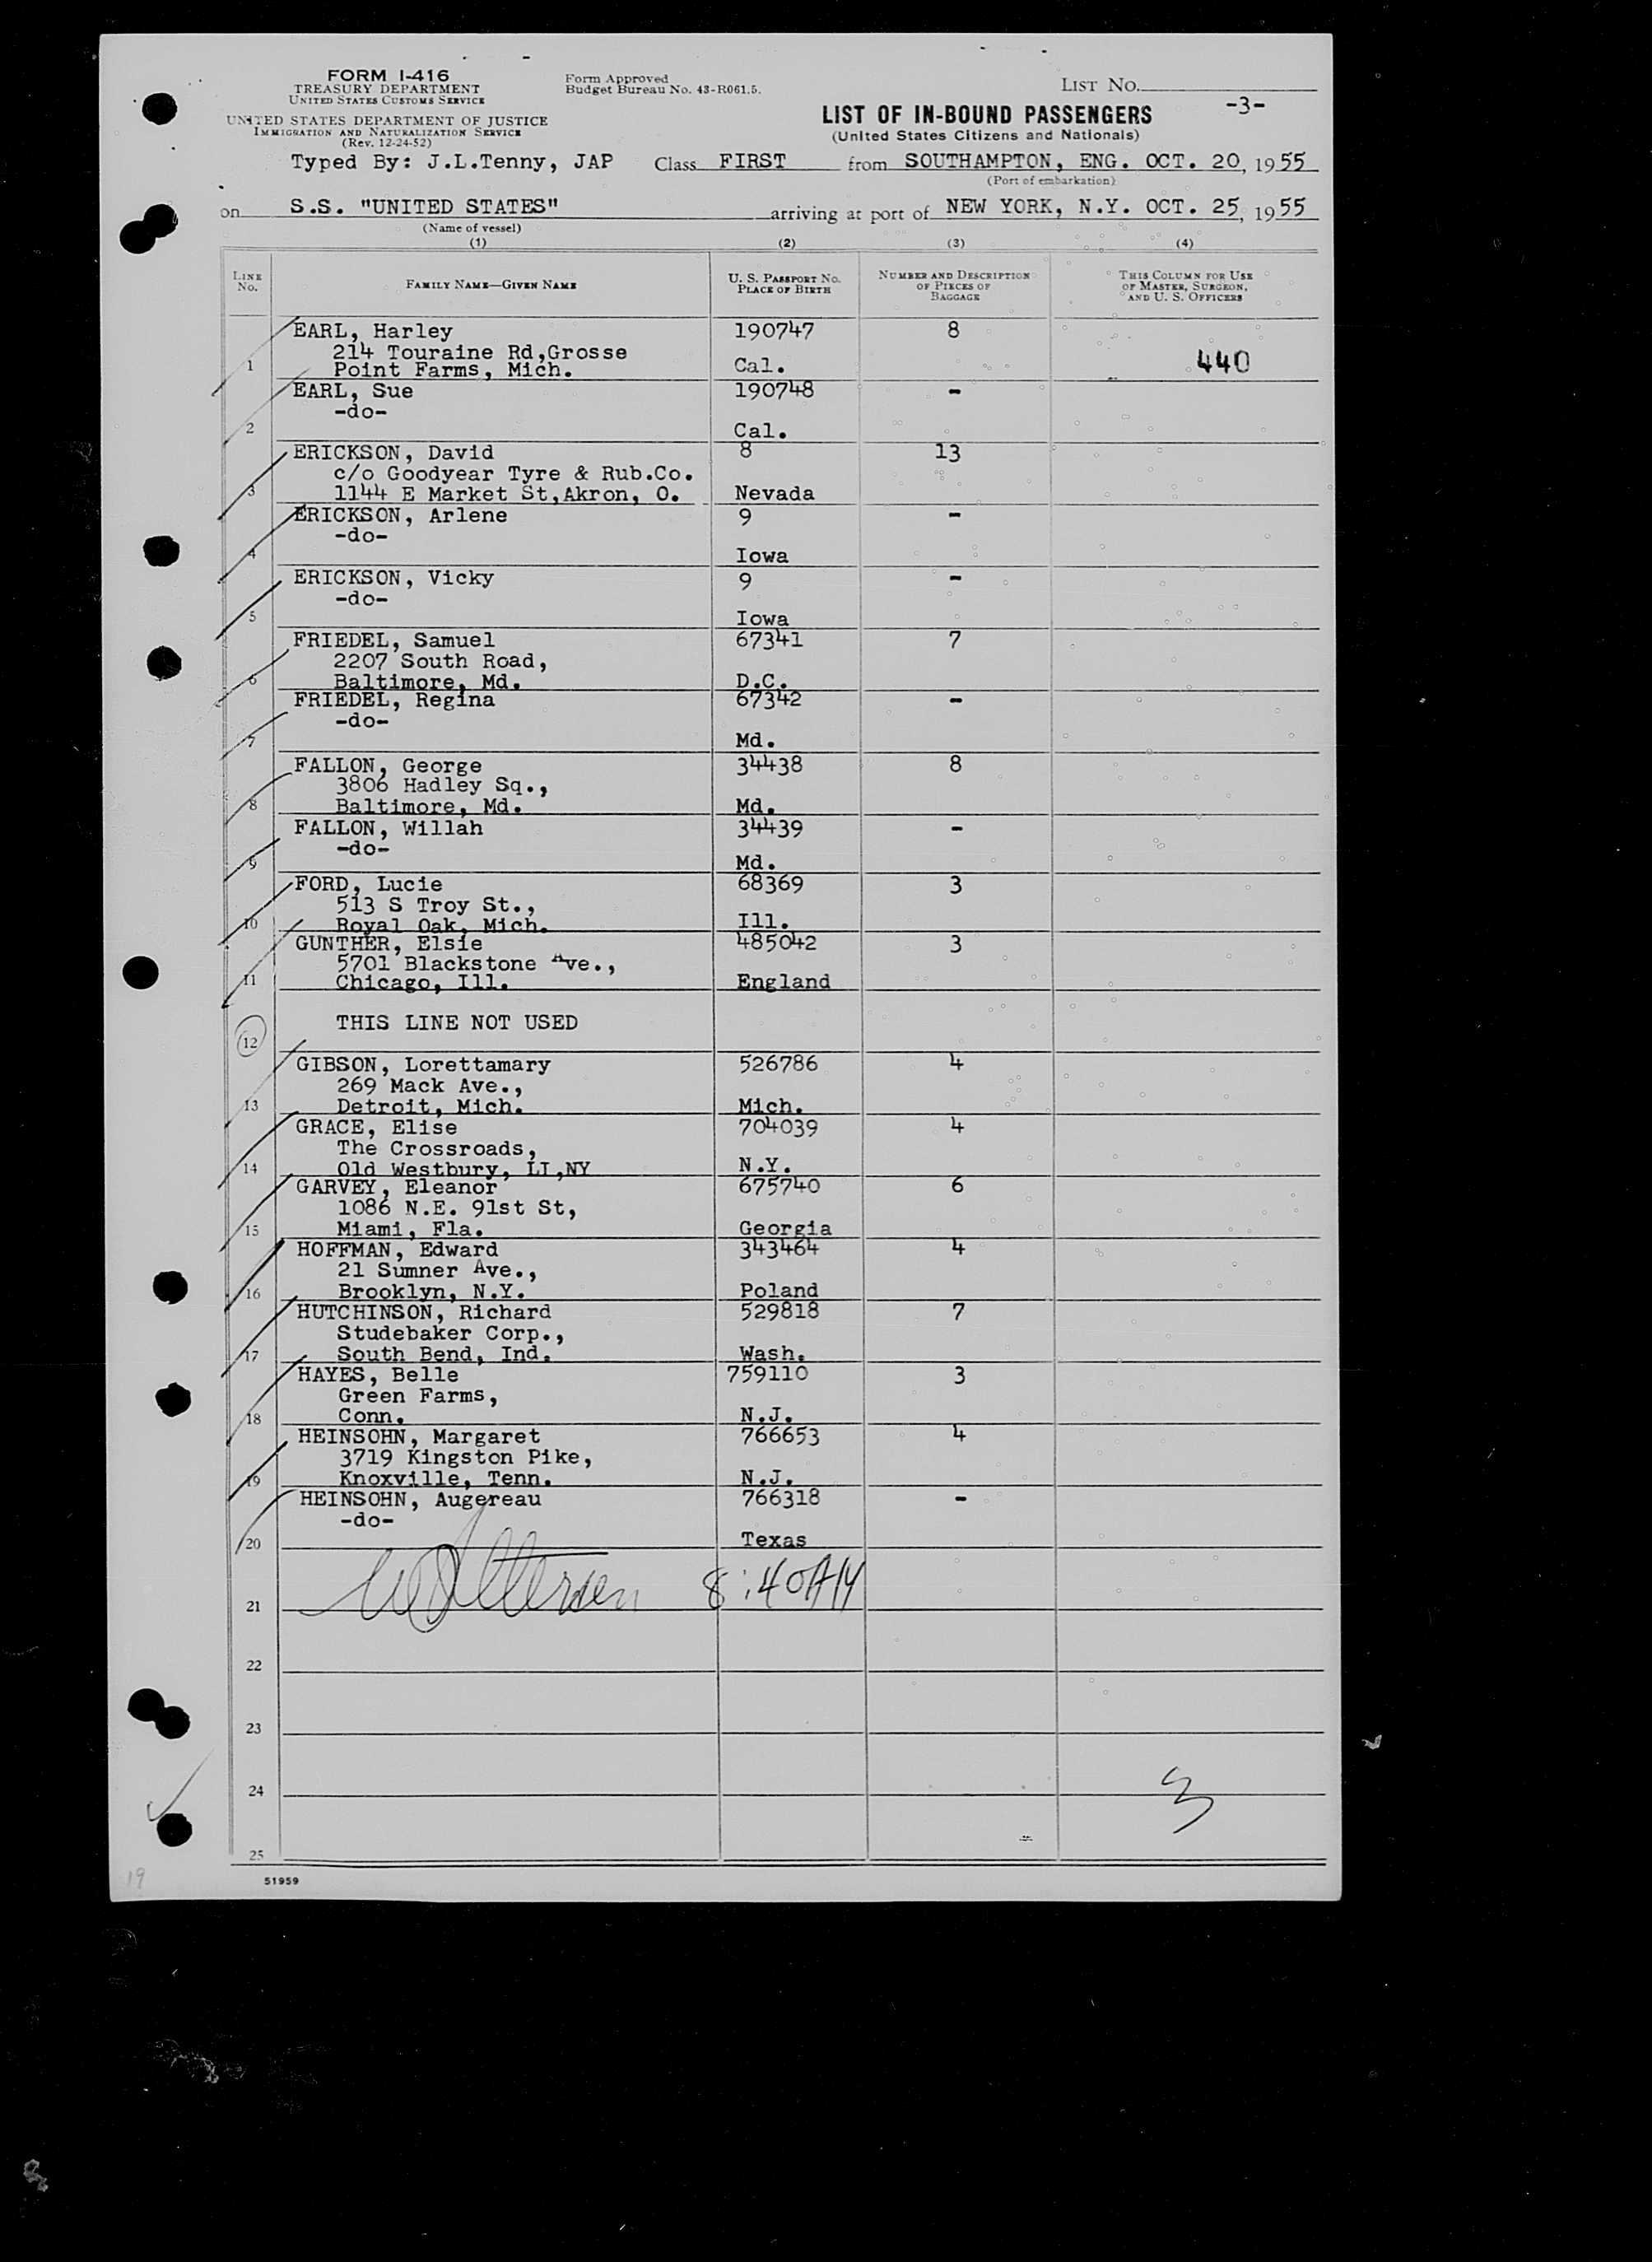 FORM I-416
TREASURY DEPARTMENT
UNITED STATES CUSTOMS SERVICE
UNITED STATES DEPARTMENT OF JUSTICE
IMMIGRATION AND NATURALIZATION SERVICE
(Rev. 12-24-52)
Form Approved
Budget Bureau No. 43-R061.5.
LIST NO.
-3-
LIST OF IN-BOUND PASSENGERS
(United States Citizens and Nationals)
Typed By: J.L.Tenny, JAP Class FIRST from SOUTHAMPTON, ENG. OCT. 20, 1955
(Port of embarkation)
on S.S. "UNITED STATES" arriving at port of NEW YORK, N.Y. OCT. 25, 1955
(Name of vessel)
(1) (2) (3) (4)
LINE No. FAMILY NAME—GIVEN NAME U. S. PASSPORT NO. PLACE OF BIRTH NUMBER AND DESCRIPTION OF PIECES OF BAGGAGE THIS COLUMN FOR USE OF MASTER, SURGEON, AND U. S. OFFICERS
EARL, Harley 190747 8
214 Touraine Rd,Grosse
1 Point Farms, Mich. Cal. 440
EARL, Sue 190748 -
-do-
2 Cal.
ERICKSON, David 8 13
c/o Goodyear Tyre & Rub.Co.
3 1144 E Market St,Akron, O. Nevada
ERICKSON, Arlene 9 -
-do-
4 Iowa
ERICKSON, Vicky 9 -
-do-
5 Iowa
FRIEDEL, Samuel 67341 7
2207 South Road,
6 Baltimore, Md. D.C.
FRIEDEL, Regina 67342 -
-do-
7 Md.
FALLON, George 34438 8
3806 Hadley Sq.,
8 Baltimore, Md. Md.
FALLON, Willah 34439 -
-do-
9 Md.
FORD, Lucie 68369 3
513 S Troy St.,
10 Royal Oak, Mich. Ill.
GUNTHER, Elsie 485042 3
5701 Blackstone Ave.,
11 Chicago, Ill. England
THIS LINE NOT USED
12
GIBSON, Lorettamary 526786 4
269 Mack Ave.,
13 Detroit, Mich. Mich.
GRACE, Elise 704039 4
The Crossroads,
14 Old Westbury, LI,NY N.Y.
GARVEY, Eleanor 675740 6
1086 N.E. 91st St,
15 Miami, Fla. Georgia
HOFFMAN, Edward 343464 4
21 Sumner Ave.,
16 Brooklyn, N.Y. Poland
HUTCHINSON, Richard 529818 7
Studebaker Corp.,
17 South Bend, Ind. Wash.
HAYES, Belle 759110 3
Green Farms,
18 Conn. N.J.
HEINSOHN, Margaret 766653 4
3719 Kingston Pike,
19 Knoxville, Tenn. N.J.
HEINSOHN, Augereau 766318 -
-do-
20 Texas
8:40AM
21
22
23
24
3
25
51959
19